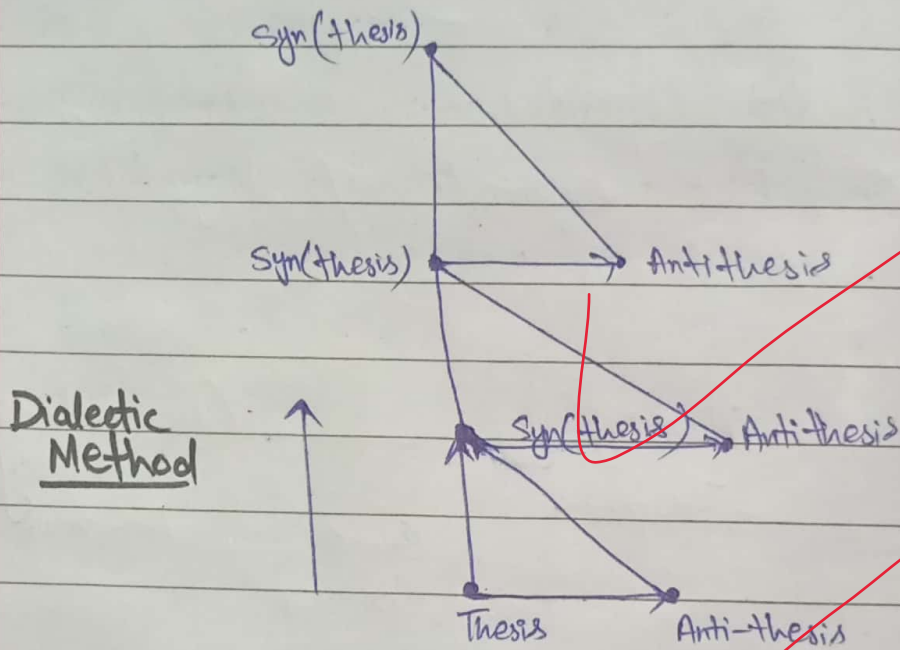 Syn(thesis)
Syn(thesis) Antithesis
Dialectic
Method
Syn(thesis) Anti-thesis
Thesis Anti-thesis